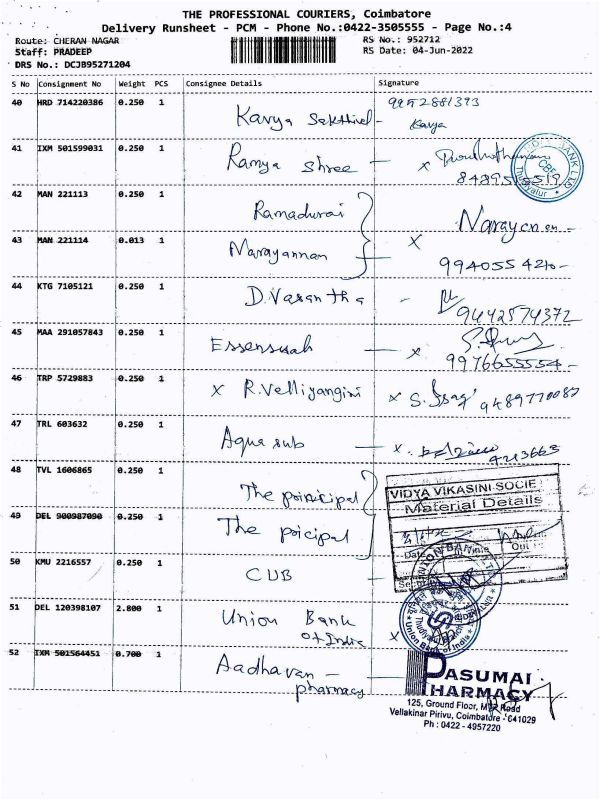 THE PROFESSIONAL COURIERS, Coimbatore
Delivery Runsheet - PCM - Phone No.:0422-3505555 - Page No.:4
Route: CHERAN NAGAR
RS No.: 952712
Staff: PRADEEP
RS Date: 04-Jun-2022
DRS No.: DCJB95271204
S No Consignment No Weight PCS Consignee Details Signature
40 HRD 714220386 0.250 1 Kavya Sakthivel - 9952881393
Kavya
41 IXM 501599031 0.250 1 Ramya Shree — x
42 MAN 221113 0.250 1 Ramadurai Narayanan
43 MAN 221114 0.013 1 Narayannan — x
9940554210 -
44 KTG 7105121 0.250 1 D. Vasantha - 9442574372
45 MAA 291057843 0.250 1 Essensuah — x
9976655554 -
46 TRP 5729883 0.250 1 x R. Velliyangiri x 9489770087
47 TRL 603632 0.250 1 Aqua sub — x. 4213663
48 TVL 1606865 0.250 1 The prinicipal
VIDYA VIKASINI SOCIE
Material Details
49 DEL 900987090 0.250 1 The pricipal
50 KMU 2216557 0.250 1 CUB —
51 DEL 120398107 2.800 1 Union Bank
of India x
Union Bank of India
52 IXM 501564451 0.700 1 Aadhavan -
pharmacy
PASUMAI
PHARMACY
125, Ground Floor, MTP Road
Vellakinar Pirivu, Coimbatore - 641029
Ph : 0422 - 4957220